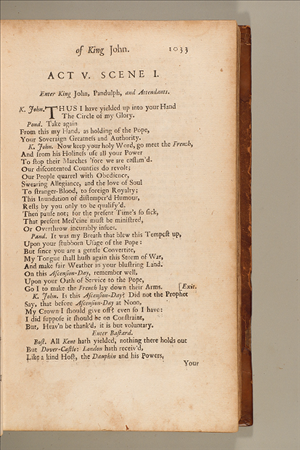 of King John. 1033
ACT V. SCENE I.
Enter King John, Pandulph, and Attendants.
K. John. THUS I have yielded up into your Hand
The Circle of my Glory.
Pand. Take again
From this my Hand, as holding of the Pope,
Your Soveraign Greatness and Authority.
K. John. Now keep your holy Word, go meet the French,
And from his Holiness use all your Power
To stop their Marches 'fore we are enflam'd.
Our discontented Counties do revolt;
Our People quarrel with Obedience,
Swearing Allegiance, and the love of Soul
To stranger-Blood, to foreign Royalty;
This Inundation of distemper'd Humour,
Rests by you only to be qualify'd.
Then pause not; for the present Time's so sick,
That present Med'cine must be ministred,
Or Overthrow incurably insues.
Pand. It was my Breath that blew this Tempest up,
Upon your stubborn Usage of the Pope:
But since you are a gentle Convertite,
My Tongue shall hush again this Storm of War,
And make fair Weather in your blustring Land.
On this Ascension-Day, remember well,
Upon your Oath of Service to the Pope,
Go I to make the French lay down their Arms. [Exit.
K. John. Is this Ascension-Day? Did not the Prophet
Say, that before Ascension-Day at Noon,
My Crown I should give off? even so I have:
I did suppose it should be on Constraint,
But, Heav'n be thank'd, it is but voluntary.
Enter Bastard.
Bast. All Kent hath yielded, nothing there holds out
But Dover-Castle: London hath receiv'd,
Like a kind Host, the Dauphin and his Powers,
Your